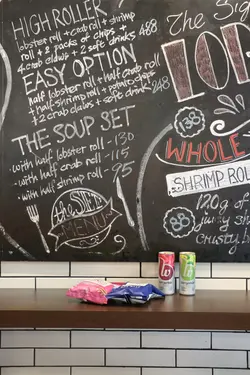 HIGH ROLLER
lobster roll + crab roll + shrimp
roll + 2 packs of chips +
4 crab claws + 2 soft drinks 488
EASY OPTION
half lobster roll + half crab roll
+ half shrimp roll + potato chips
+ 2 crab claws + soft drink 248
THE SOUP SET
- with half lobster roll - 130
- with half crab roll - 115
- with half shrimp roll - 95
the SLIM
MENU
The Big
WHOLE
SHRIMP ROL
120g of
crusty